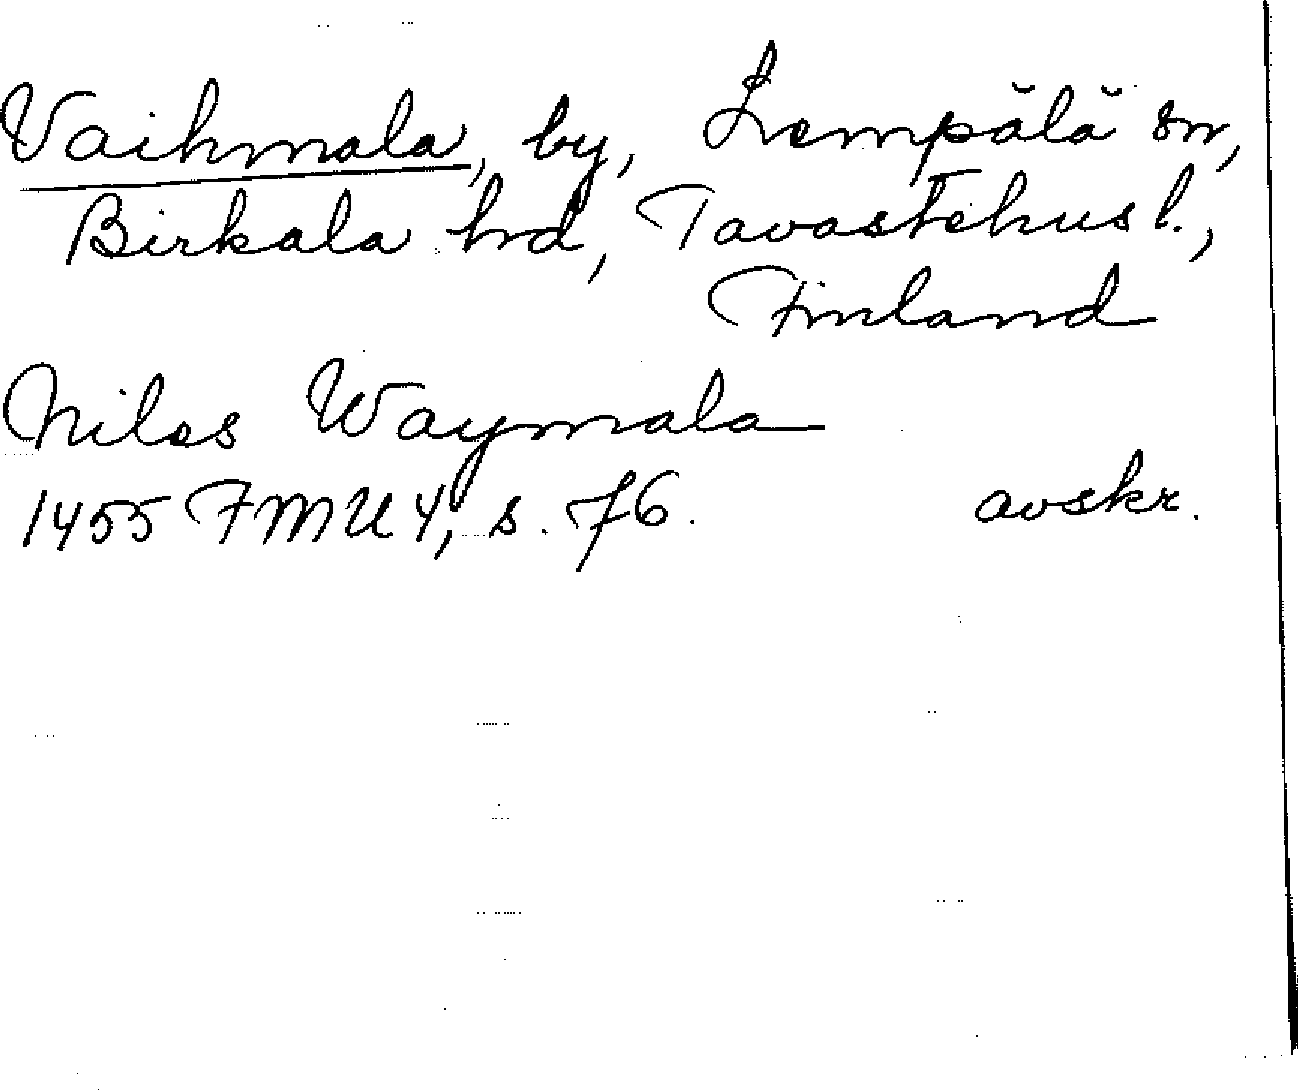 Vaihmala, by, Lempälä sn,
Birkala hd, Tavastehus l.,
Finland
Niles Waymala
1455 FMU 4, s. 76. avskr.